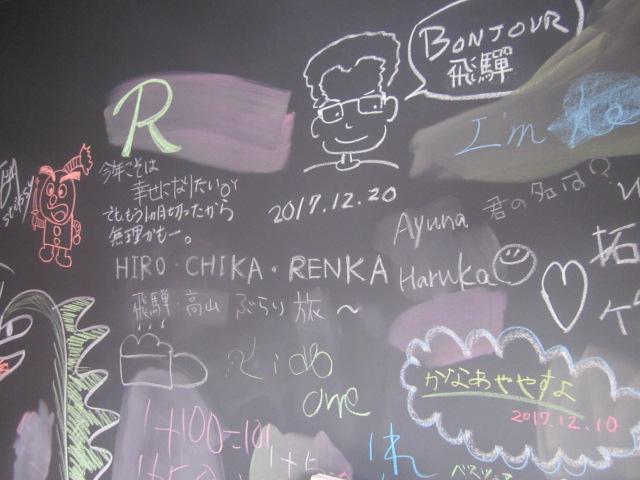 BONJOUR
飛騨
R
I'm
今年こそは
幸せになりたい
でも、もう1か月切ったから
無理かもー。
2017.12.20
Ayuna 君の名は?
Haruka
HIRO・CHIKA・RENKA
飛騨・高山 ぶらり旅〜
拓
Kids
one
かなあややすよ
2017.12.10
1+100=101